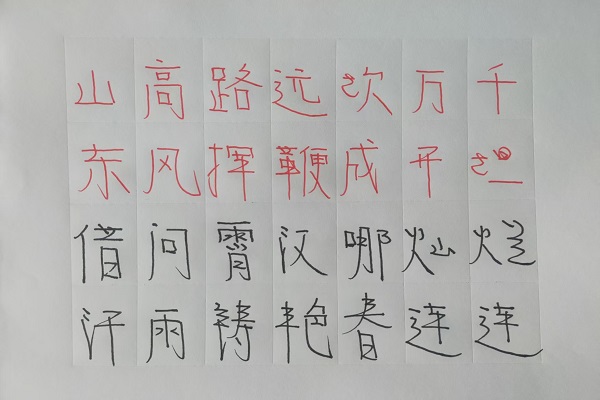 山高路远坎万千
东风挥鞭成开坦
借问霄汉哪灿烂
汗雨艳春连连